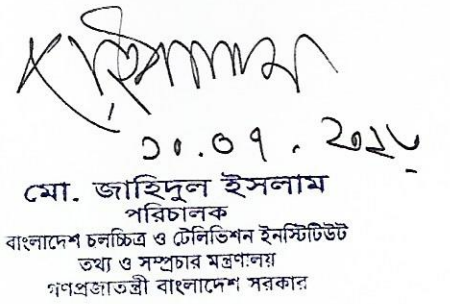 ১০.০৭.২০১৮
মো. জাহিদুল ইসলাম
পরিচালক
বাংলাদেশ চলচ্চিত্র ও টেলিভিশন ইনস্টিটিউট
তথ্য ও সম্প্রচার মন্ত্রণালয়
গণপ্রজাতন্ত্রী বাংলাদেশ সরকার